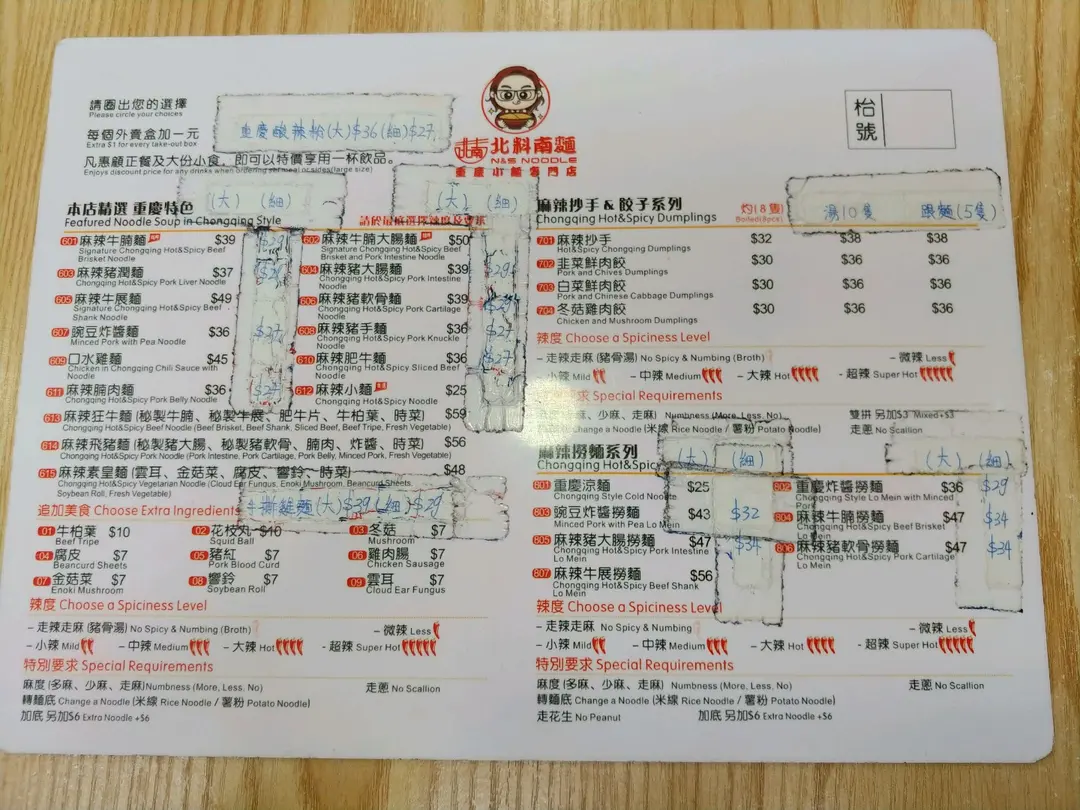 請圈出您的選擇
Please circle your choices
每個外賣盒加一元
Extra $1 for every take-out box
重慶酸辣粉(大)$36(細)$27
北料南麵
N&S NOODLE
重慶小麵專門店
枱號
凡惠顧正餐及大份小食，即可以特價享用一杯飲品。
Enjoys discount price for any drinks when ordering set meal or sides(large size)
(大) (細)
(大) (細)
本店精選 重慶特色
Featured Noodle Soup in Chongqing Style
601 麻辣牛腩麵 $39 $29
Signature Chongqing Hot&Spicy Beef Brisket Noodle
602 麻辣牛腩大腸麵 $50
Signature Chongqing Hot&Spicy Beef Brisket and Pork Intestine Noodle
603 麻辣豬潤麵 $37
Chongqing Hot&Spicy Pork Liver Noodle
604 麻辣豬大腸麵 $39 $29
Chongqing Hot&Spicy Pork Intestine Noodle
605 麻辣牛展麵 $49
Signature Chongqing Hot&Spicy Beef Shank Noodle
606 麻辣豬軟骨麵 $39
Chongqing Hot&Spicy Pork Cartilage Noodle
607 豌豆炸醬麵 $36 $27
Minced Pork with Pea Noodle
608 麻辣豬手麵 $36 $27
Chongqing Hot&Spicy Pork Knuckle Noodle
609 口水雞麵 $45
Chicken in Chongqing Chili Sauce with Noodle
610 麻辣肥牛麵 $36 $27
Chongqing Hot&Spicy Sliced Beef Noodle
611 麻辣腩肉麵 $36 $27
Chongqing Hot&Spicy Pork Belly Noodle
612 麻辣小麵 $25
Chongqing Hot&Spicy Noodle
613 麻辣狂牛麵 (秘製牛腩、秘製牛展、肥牛片、牛柏葉、時菜) $59
Chongqing Hot&Spicy Beef Noodle (Beef Brisket, Beef Shank, Sliced Beef, Beef Tripe, Fresh Vegetable)
614 麻辣飛豬麵 (秘製豬大腸、秘製豬軟骨、腩肉、炸醬、時菜) $56
Chongqing Hot&Spicy Pork Noodle (Pork Intestine, Pork Cartilage, Pork Belly, Minced Pork, Fresh Vegetable)
615 麻辣素皇麵 (雲耳、金菇菜、腐皮、響鈴、時菜) $48
Chongqing Hot&Spicy Vegetarian Noodle (Cloud Ear Fungus, Enoki Mushroom, Beancurd Sheets, Soybean Roll, Fresh Vegetable)
手撕雞麵(大)$39(細)$29
追加美食 Choose Extra Ingredients
01 牛柏葉 $10
Beef Tripe
02 花枝丸 $10
Squid Ball
03 冬菇 $7
Mushroom
04 腐皮 $7
Beancurd Sheets
05 豬紅 $7
Pork Blood Curd
06 雞肉腸 $7
Chicken Sausage
07 金菇菜 $7
Enoki Mushroom
08 響鈴 $7
Soybean Roll
09 雲耳 $7
Cloud Ear Fungus
辣度 Choose a Spiciness Level
- 走辣走麻 (豬骨湯) No Spicy & Numbing (Broth)
- 微辣 Less
- 小辣 Mild
- 中辣 Medium
- 大辣 Hot
- 超辣 Super Hot
特別要求 Special Requirements
麻度 (多麻、少麻、走麻) Numbness (More, Less, No)
走蔥 No Scallion
轉麵底 Change a Noodle (米線 Rice Noodle / 薯粉 Potato Noodle)
加底 另加$6 Extra Noodle +$6
麻辣抄手 & 餃子系列
Chongqing Hot&Spicy Dumplings
灼(8隻)
Boiled(8pcs)
湯10隻 跟麵(5隻)
701 麻辣抄手 $32 $38 $38
Hot&Spicy Chongqing Dumplings
702 韭菜鮮肉餃 $30 $36 $36
Pork and Chives Dumplings
703 白菜鮮肉餃 $30 $36 $36
Pork and Chinese Cabbage Dumplings
704 冬菇雞肉餃 $30 $36 $36
Chicken and Mushroom Dumplings
辣度 Choose a Spiciness Level
- 走辣走麻 (豬骨湯) No Spicy & Numbing (Broth)
- 微辣 Less
小辣 Mild
- 中辣 Medium
- 大辣 Hot
- 超辣 Super Hot
求 Special Requirements
、少麻、走麻) Numbness (More, Less, No)
雙拼 另加$3 Mixed+$3
(米線 Rice Noodle / 薯粉 Potato Noodle)
走蔥 No Scallion
麻辣撈麵系列
Chongqing Hot&Spicy
(大) (細)
(大) (細)
801 重慶涼麵 $25
Chongqing Style Cold Noodle
802 重慶炸醬撈麵 $36 $29
Chongqing Style Lo Mein with Minced Pork
803 豌豆炸醬撈麵 $43 $32
Minced Pork with Pea Lo Mein
804 麻辣牛腩撈麵 $47 $34
Chongqing Hot&Spicy Beef Brisket Lo Mein
805 麻辣豬大腸撈麵 $47 $34
Chongqing Hot&Spicy Pork Intestine Lo Mein
806 麻辣豬軟骨撈麵 $47 $34
Chongqing Hot&Spicy Pork Cartilage Lo Mein
807 麻辣牛展撈麵 $56
Chongqing Hot&Spicy Beef Shank Lo Mein
辣度 Choose a Spiciness Level
- 走辣走麻 No Spicy & Numbing
- 微辣 Less
- 小辣 Mild
- 中辣 Medium
- 大辣 Hot
- 超辣 Super Hot
特別要求 Special Requirements
麻度 (多麻、少麻、走麻) Numbness (More, Less, No)
走蔥 No Scallion
轉麵底 Change a Noodle (米線 Rice Noodle / 薯粉 Potato Noodle)
走花生 No Peanut
加底 另加$6 Extra Noodle +$6